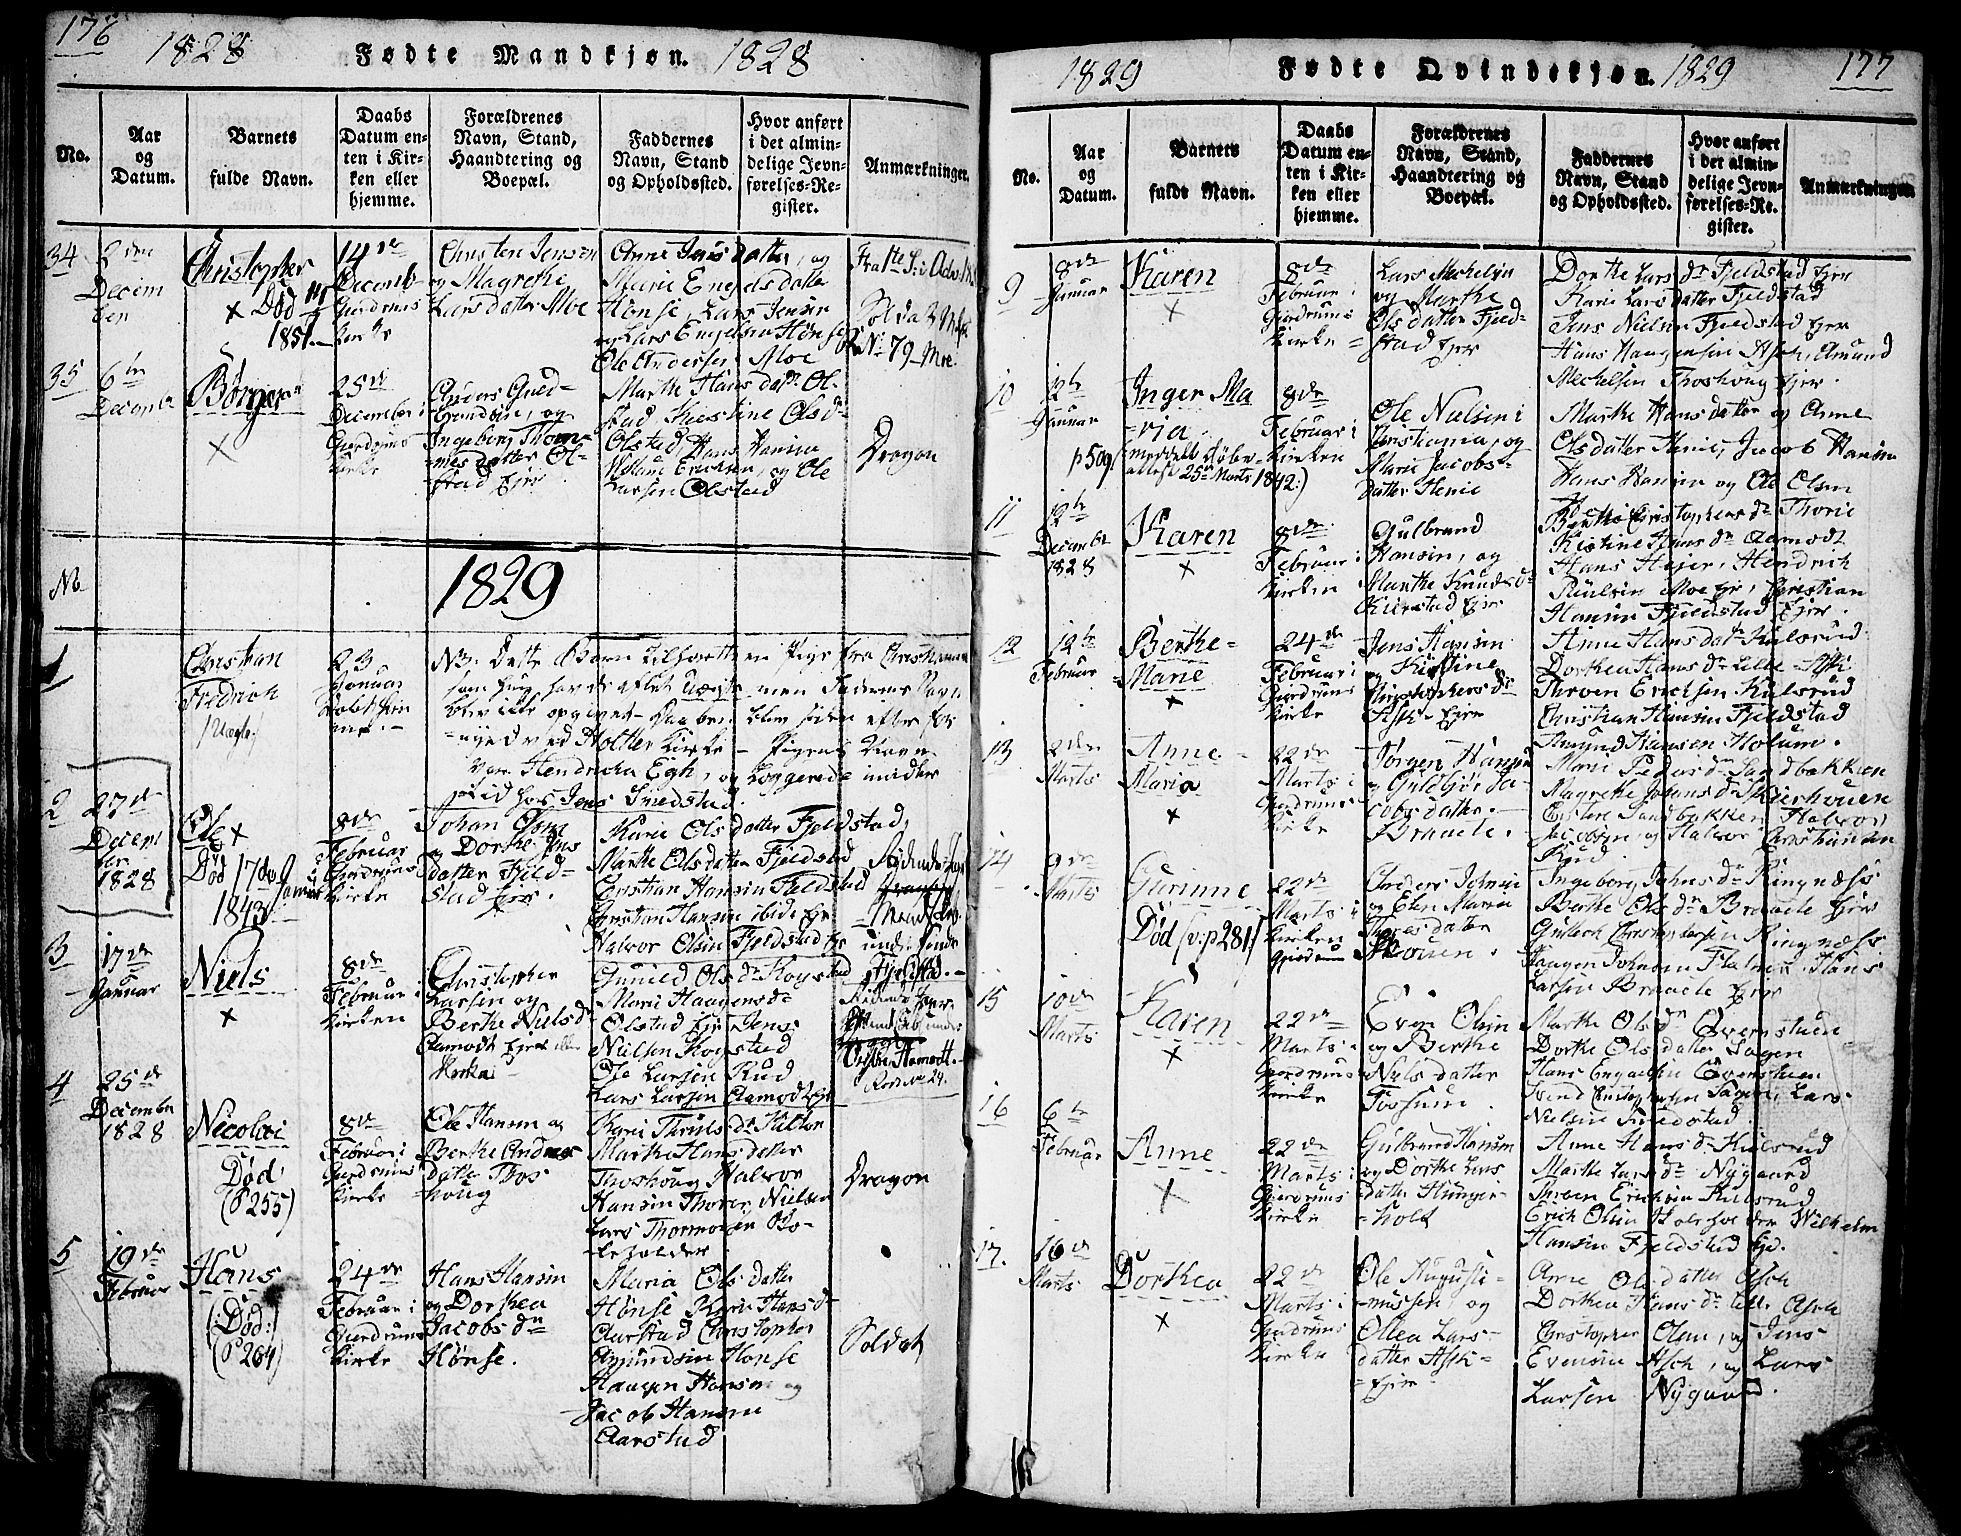 176
1828 Fødte Mandkjøn. 1828
No.
Aar
og
Datum.
Barnets
fulde Navn.
Daabs
Datum en-
ten i Kir-
ken eller
hjemme.
Forældrenes
Navn, Stand,
Haandtering og
Boepæl.
Faddernes
Navn, Stand
og Opholdssted.
Hvor anført
i det almin-
delige Jevn-
førelses-Re-
gister.
Anmærkninger.
34
2den
Decem
ber
Christopher
x Død
1851.
14de
Decemb
Gierdrums
Kirke
Christen Jensen
og Magrethe
Larsdatter Moe
Anne Jensdatter, og
Marie Engelsdatter
Hønse, Lars Jensen
og Lars Engelsen Hønse
Ole Andersen Moe
Soldat
No 79
35
6te
Decembr
Børger
x
25de
December i
Gierdrums
Kirke
Anders Gud-
Ingeborg Thom-
mesdatter Ol-
stad Ejer
Marthe Hansdatr Ol-
stad, Kirstine Olsdr
Olstad, Hans Hansen
Willum Erichsen, og Ole
Larsen Olstad
Dragon
No
1829
1
Christian
Fredrich
/Uægte/
23
Januar
NB. Dette Barn tilhørte en Pige fra Christiania
som hun havde avlet uægte men Faderens Navn
blev ikke opgivet Daaben blev siden efter for
nyed ved Holter Kirke Pigens Navn
var Hendricka Egh, og Loggerede imidler
tid hos Jens Smedstad.
2
27de
Decem
ber
1828
Ole x
Død 17de Januar
1843
8de
Februar i
Gierdrums
Kirke
Johan Olsen
og Dorthe Jens
datter Field-
stad Ejer.
Karie Olsdatter Fjeldstad,
Marthe Olsdatter Fjeldstad
Christian Hansen Fjeldstad
Christian Hansen ibid. Ejer
Halvor Olsen Fjeldstad Ejer
3
17de
Januar
Niels
x
8de
Februar i
Kirken
Christopher
Larsen og
Berthe Nielsdr
Aamodt Ejer
Gunild Olsdr Kogstad
Marie Haagensdr
Olstad Ejer Jens
Nielsen Kogstad
Ole Larsen Rud
Lars Larsen Aamodt Ejer
4
25de
December
1828
Nicolai
Død
(P 255)
8de
Februar i
Gierdrums
Kirke
Ole Hansen og
Berthe Andreas
datter Thos
houg
Karie Thrulsdr Kilton
Marthe Hansdatter
Thoshoug Halvor
Hansen Thorer Nielsen
Lars Thormosen Bo-
Dragon
5
19de
Februar
Hans
(:Død:)
(P 264)
24de
Februar i
Gierdrums
Kirke
Hans Hansen
og Dorthea
Jacobsdr
Hønse.
Maria Olsdatter
Hønse Karie Hansdr
Aarstad Christopher
Amundsen Honse
Haagen Hansen og
Jacob Hansen
Aarstad
Soldat
1829 Fødte Qvindekjøn. 1829 177
No.
Aar
og
Datum.
Barnets
fulde Navn.
Daabs
Datum en-
ten i Kir-
ken eller
hjemme.
Forældrenes
Navn, Stand,
Haandtering og
Boepæl.
Faddernes
Navn, Stand
og Opholdssted.
Hvor anført
i det almin-
delige Jevn-
førelses-Re-
gister.
Anmærkninger.
9
8de
Januar
Karen
x
8de
Februar i
Gierdrums
Kirke
Lars Mechelsen
og Marthe
Olsdatter Fjeld-
stad Ejer
Dorthe Larsdr Fjeldstad Ejer
Karie Larsdatter Fjeldstad
Jens Nielsen Fjeldstad Ejer
Hans Haagensen Asch, Amund
Mechelsen Thoshoug Ejer.
10
12te
Januar
Inger Ma
ria.
p 509
(meddelt Døbe-
attest 25de Marts 1842:)
8de
Februar i
Kirken
Ole Nielsen i
Christiania, og
Marie Jacobs-
datter Henie
Marthe Hansdatter og Anne
Olsdatter Henie, Jacob Hansen
Hans Hansen og Ole Olsen
11
12te
December
1828
Karen
x
8de
Februar i
Kirken
Gulbrand
Hansen, og
Marthe Knudsdr
Kierstad Ejer
Berthe Christophersdr Thorie
Kistine Hansdr Aamodt
Hans Hejer, Hendrich
Poulsen Moe Ejer, Christian
Hansen Fjeldstad Ejer.
12
12te
Februar
Berthe
Marie
x
24de
Februar i
Gierdrums
Kirke
Jens Hansen
og Kistine
Christophersdr
Ask Ejer
Anne Hansdatr Kulsrud
Dorthea Hansdr Lille Ask
Thron Erichsen Kulsrud
Christian Hansen Fjeldstad
Amund Hansen Holum.
13
2den
Marts
Anne
Maria
x
22de
Marts i
Gierdrums
Kirke
Jørgen Hansen
og Guldbjør Ja-
cobsdatter
Braate.
Marie Pedersdr Sandbakken
Magrethe Johansdr Skierhouen
Eystein Sandbakken Halvor
Jacobsen, og Halvor Christiansen
Rud.
14
9de
Marts
Gurinne
Død /v: p 281/
22de
Marts i
Kirken
Gierdrum
Anders Johnsen
og Elen Maria
Thoresdatter
Skouen.
Ingeborg Johnsdr Ringnæss
Berthe Olsdr Braate Ejer
Gulbrch Christophersen Ringnæss
Haagen Johnsen Flatner, Hans
Larsen Braate Ejer
15
10de
Marts
Karen
x
22de
Marts i
Gierdrums
Kirke
Even Olsen
og Berthe
Nielsdatter
Fossum.
Marthe Olsdr Qvenstuen
Dorthe Olsdatter Sagen
Hans Engelsen Evenstuen
Svend Christophersen Sagen, Lars
Nielsen Fjeldstad
16
6te
Februar
Anne
x
22de
Marts i
Gierdrums
Kirke
Gulbrand Hansen
og Dorthe Lars
datter Hunger-
holt
Anne Hansdr Kulsrud
Marthe Larsdr Nygaard
Thron Erichsen Kulsrud
Erich Olsen Holeholden Wilhelm
Hansen Fjeldstad Ejd.
17.
16de
Marts
Dorthea
x
22de
Marts i
Gierdrums
Kirke
Ole Augusti-
nussen, og
Ollea Lars-
datter Ask-
Ejer
Anne Olsdatter Asch
Dorthea Hansdr Lille Asch
Christopher Olsen, og Jens
Evensen Asch, og Lars
Larsen Nygaard.